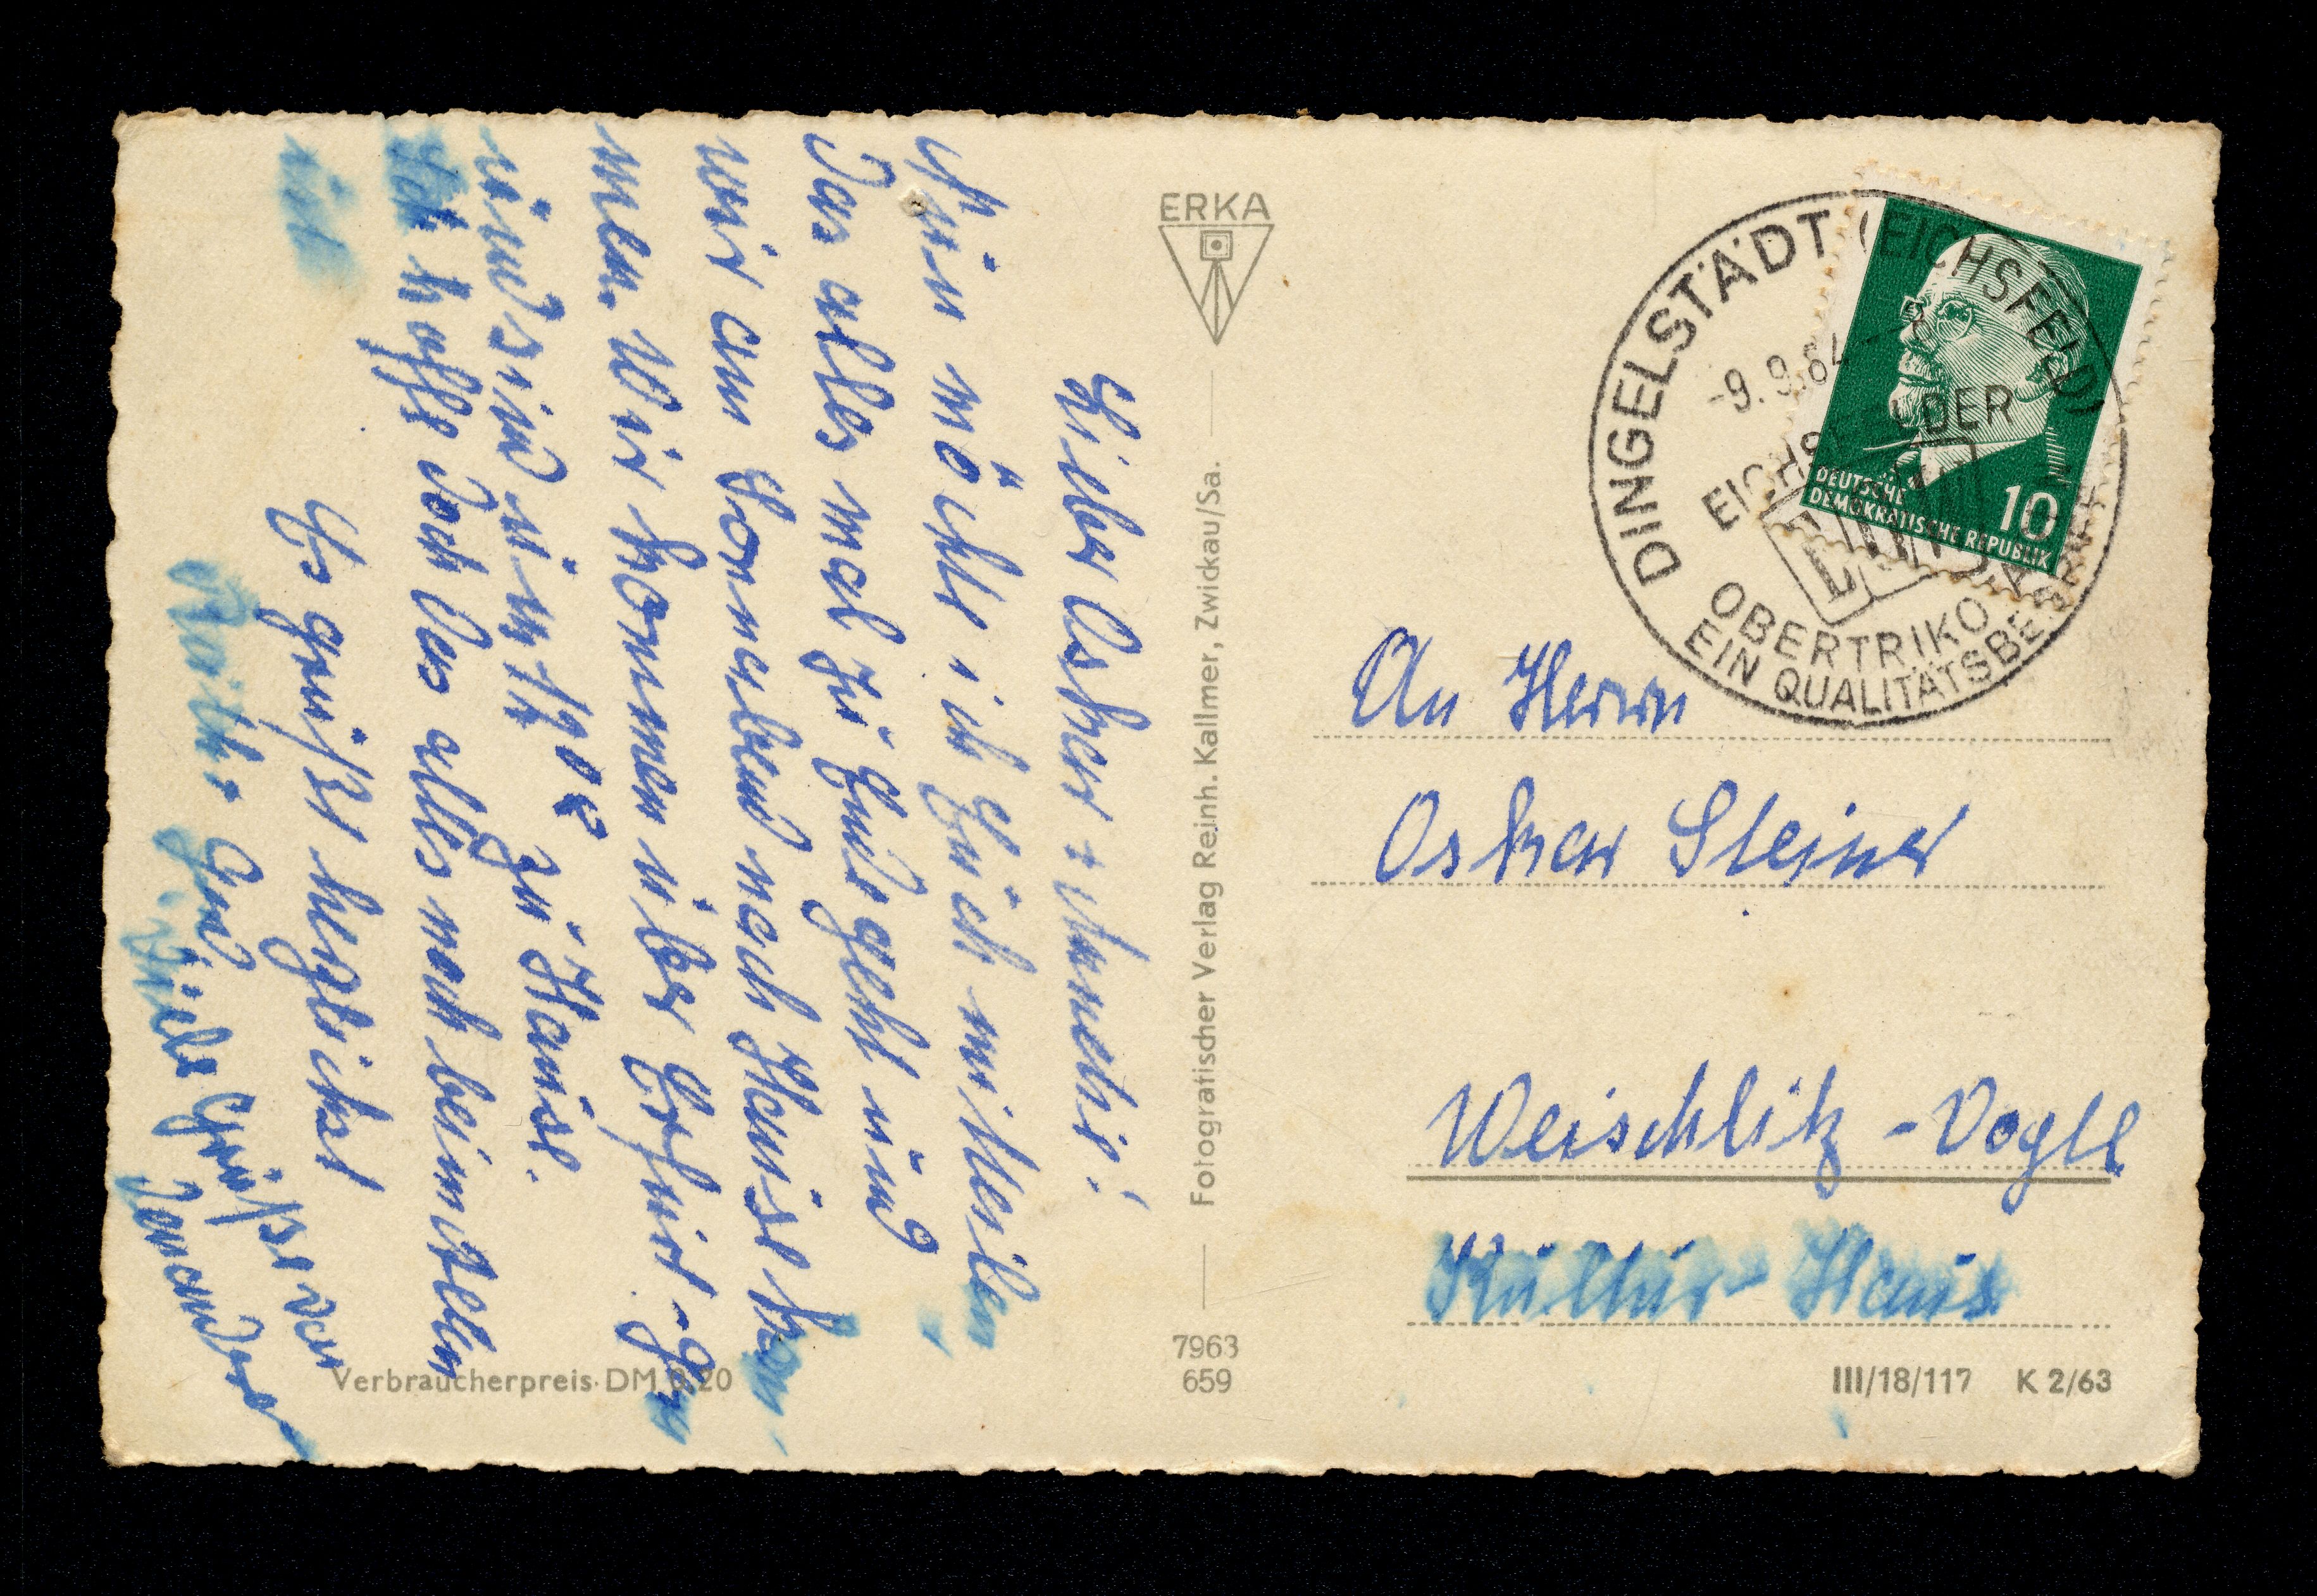 Lieber Oskar +
Nun möchte ich Euch mitteilen,
das alles mal zu Ende geht und
wir am Sonnabend nach Hause kom-
men. Wir kommen über Erfurt-Ger
und sind um
zu Hause.
Ich hoffe doch das alles noch beim
Es grüßt herzlichst
Viele Grüße von
ERKA
Fotografischer Verlag Reinh. Kallmer, Zwickau/Sa.
7963
659
Verbraucherpreis DM 0.20
DINGELSTÄDT (EICHSFELD)
-9.9.64
OBERTRIKO
EIN QUALITÄTSBE
DEUTSCHE
DEMOKRATISCHE REPUBLIK
10
An Herrn
Oskar Steiner
Weischlitz - Vogtl
Kultur-Haus
III/18/117 K 2/63